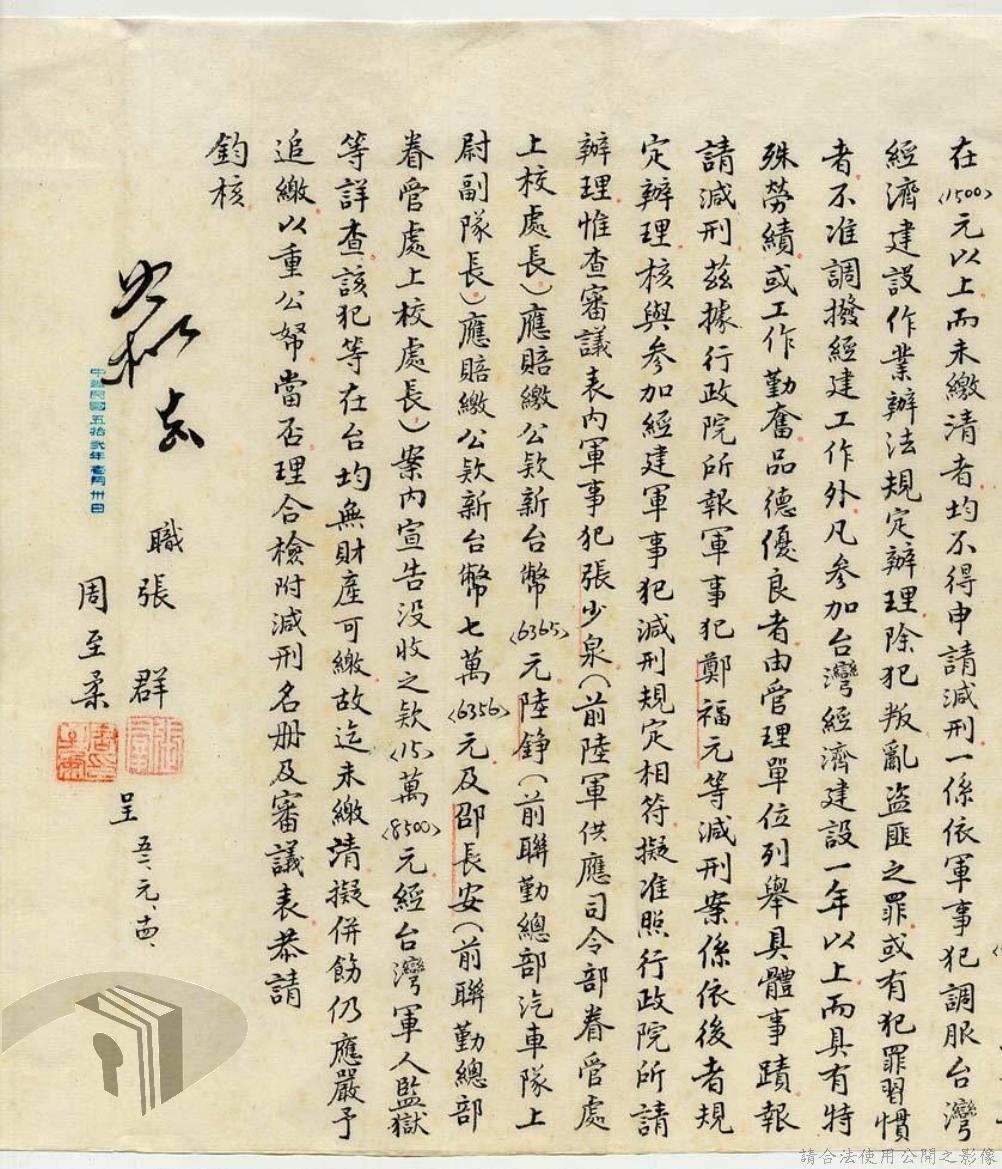 在(1500)元以上而未繳清者均不得申請減刑一係依軍事犯調服台灣
經濟建設作業辦法規定辦理除犯叛亂盜匪之罪或有犯罪習慣
者不准調撥經建工作外凡參加台灣經濟建設一年以上而具有特
殊勞績或工作勤奮品德優良者由管理單位列舉具體事蹟報
請減刑茲據行政院所報軍事犯鄭福元等減刑案係依後者規
定辦理核與參加經建軍事犯減刑規定相符擬准照行政院所請
辦理惟查審議表內軍事犯張少泉(前陸軍供應司令部眷管處
上校處長)應賠繳公款新台幣(6365)元陸錚(前聯勤總部汽車隊上
尉副隊長)應賠繳公款新台幣七萬(6356)元及邵長安(前聯勤總部
眷管處上校處長)案內宣告没收之款(15)萬(8500)元經台灣軍人監獄
等詳查該犯等在台均無財產可繳故迄未繳請擬併飭仍應嚴予
追繳以重公帑當否理合檢附減刑名册及審議表恭請
鈞核
中華民國五拾貳年壹月卅日
職張群
周至柔
呈 五二、元、十四、
請合法使用公開之影像